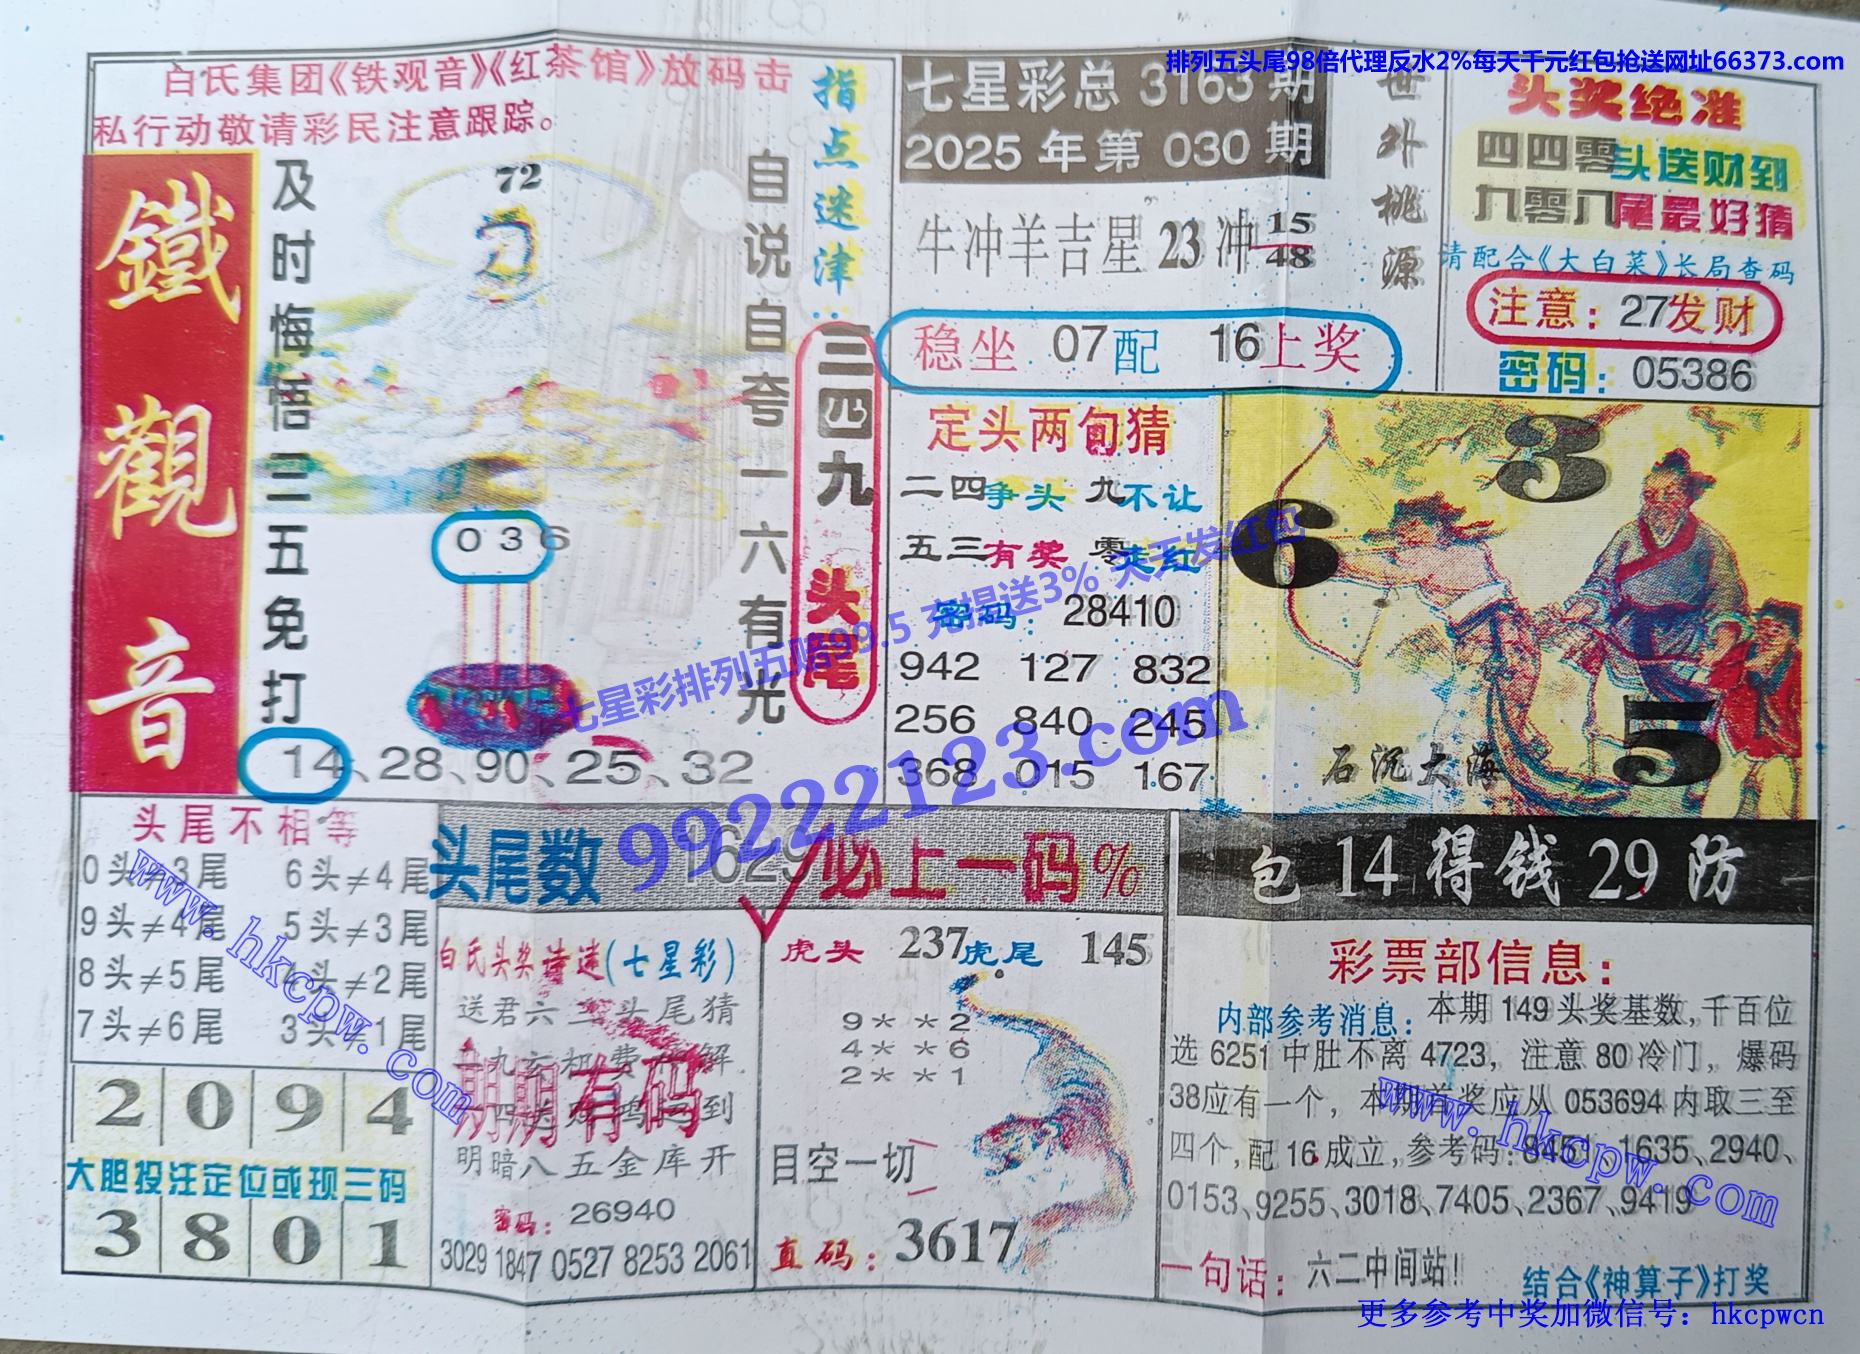 排列五头尾98倍代理反水2%每天千元红包抢送网址66373.com
白氏集团《铁观音》《红茶馆》放码击
私行动敬请彩民注意跟踪。
鐵觀音
及时悔悟三五免打
72
自说自夸一六有光
036
14、28、90、25、32
指点迷津:
三四九头尾
七星彩总 3163 期
2025 年第 030 期
牛冲羊吉星 23 冲 15 48
稳坐 07配 16上奖
世外桃源
头奖绝准
四四零头送财到
九零八尾最好猜
请配合《大白菜》长局查码
注意: 27发财
密码: 05386
定头两句猜
二四争头 九不让
五三有奖 零走红
密码: 28410
942 127 832
256 840 245
368 015 167
3
6
5
石沉大海
包 14 得钱 29 防
七星彩排列五赔99.5 充提送3% 天天发红包
99222123.com
头尾不相等
0头≠3尾 6头≠4尾
9头≠4尾 5头≠3尾
8头≠5尾 4头≠2尾
7头≠6尾 3头≠1尾
www.hkcpw.com
2 0 9 4
大胆投注定位或现三码
3 8 0 1
头尾数 1629 必上一码%
白氏头奖诗迷(七星彩)
送君六二头尾猜
期期有码
明暗八五金库开
密码: 26940
3029 1847 0527 8253 2061
虎头 237 虎尾 145
9＊ ＊2
4＊ ＊6
2＊ ＊1
目空一切
直码: 3617
彩票部信息:
内部参考消息: 本期 149 头奖基数,千百位
选 6251 中肚不离 4723, 注意 80 冷门, 爆码
38应有一个, 本期首奖应从 053694 内取三至
四个,配 16 成立,参考码: 8451、1635、2940、
0153、9255、3018、7405、2367、9419
www.hkcpw.com
一句话: 六二中间站!
结合《神算子》打奖
更多参考中奖加微信号: hkcpwcn